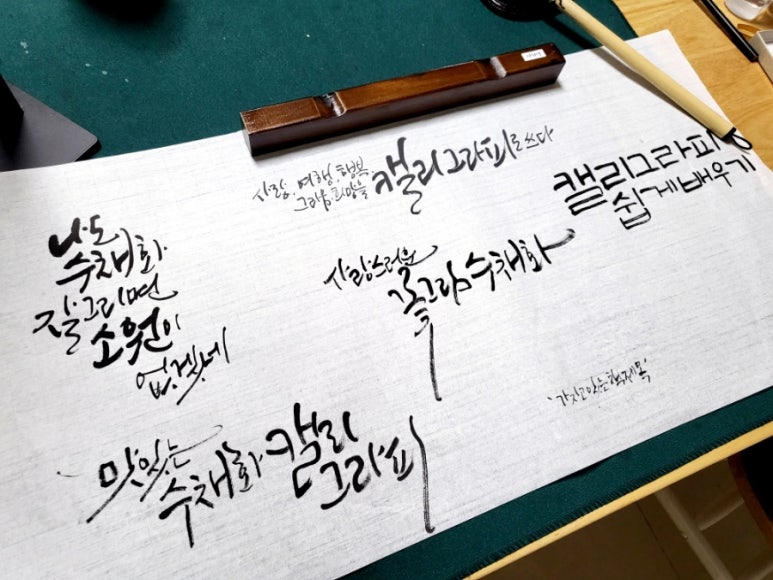 사랑, 여행, 행복,
그리움, 희망을
캘리그라피로 쓰다
캘리그라피
쉽게 배우기
나도
수채화
잘 그리면
소원이
없겠네
사랑스러운
꽃그림 수채화
'가지고 있는 책 제목'
맛있는
수채화 캘리
그라피